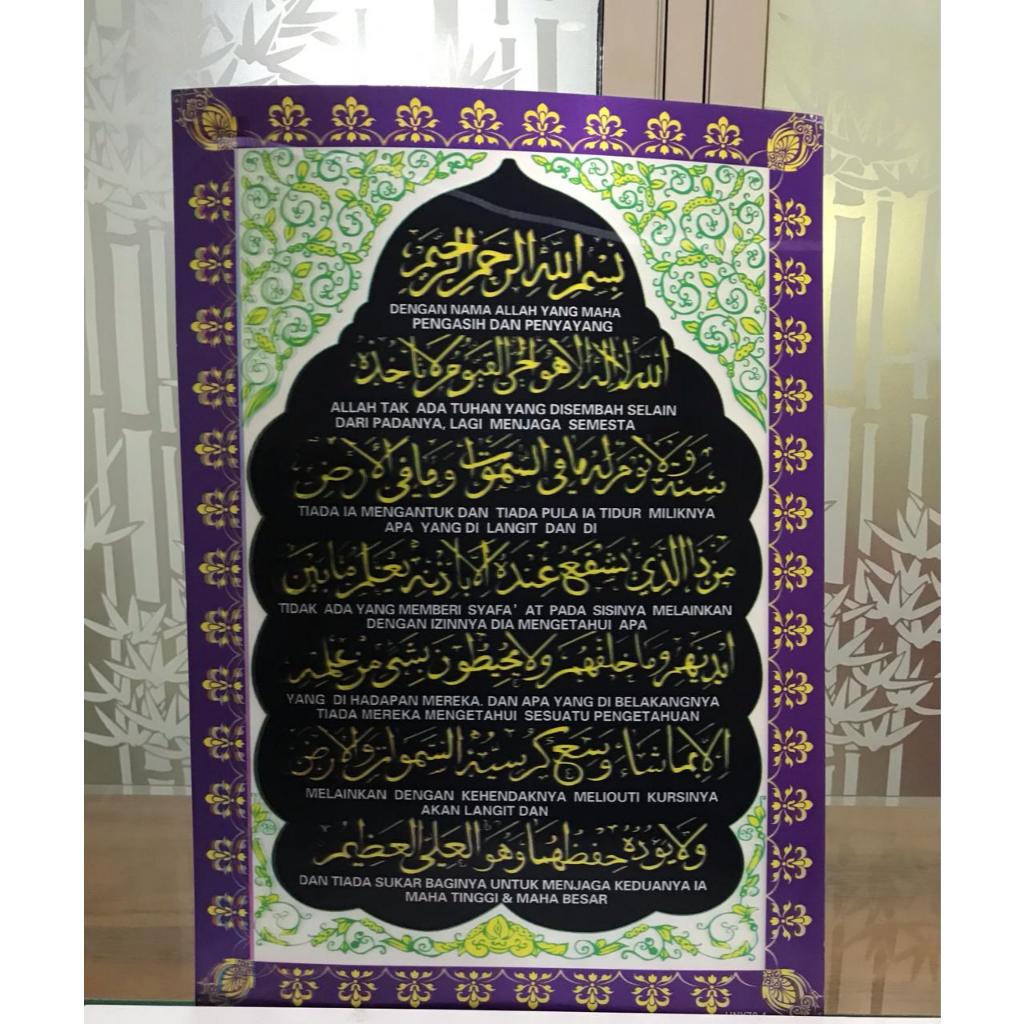 بسم الله الرحمن الرحيم
DENGAN NAMA ALLAH YANG MAHA
PENGASIH DAN PENYAYANG
الله لا اله الا هو الحي القيوم لا تأخذه
ALLAH TAK ADA TUHAN YANG DISEMBAH SELAIN
DARI PADANYA, LAGI MENJAGA SEMESTA
سنة ولا نوم له ما في السموات وما في الأرض
TIADA IA MENGANTUK DAN TIADA PULA IA TIDUR MILIKNYA
APA YANG DI LANGIT DAN DI
من ذا الذي يشفع عنده الا بإذنه يعلم ما بين
TIDAK ADA YANG MEMBERI SYAFA' AT PADA SISINYA MELAINKAN
DENGAN IZINNYA DIA MENGETAHUI APA
ايديهم وما خلفهم ولا يحيطون بشيء من علمه
YANG DI HADAPAN MEREKA. DAN APA YANG DI BELAKANGNYA
TIADA MEREKA MENGETAHUI SESUATU PENGETAHUAN
الا بما شاء وسع كرسيه السموات والارض
MELAINKAN DENGAN KEHENDAKNYA MELIOUTI KURSINYA
AKAN LANGIT DAN
ولا يوده حفظهما وهو العلي العظيم
DAN TIADA SUKAR BAGINYA UNTUK MENJAGA KEDUANYA IA
MAHA TINGGI & MAHA BESAR